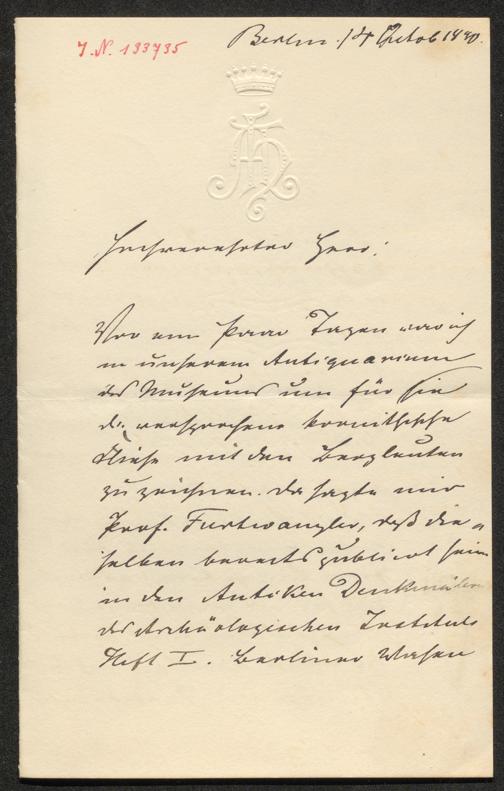 J.N. 133735
Berlin 14 Octob 1890.
AH
Hochverehrter Herr!
Vor ein Paar Tagen war ich
in unserem Antiquarium
des Museums um für Sie
die versprochene korinthische
mit den Bergleuten
zu zeichnen. Da sagte mir
Prof. Furtwängler, daß die-
selben bereits publicirt seien
in den Antiken Denkmälern
des Archäologischen Instituts
Heft I. Berliner Vasen